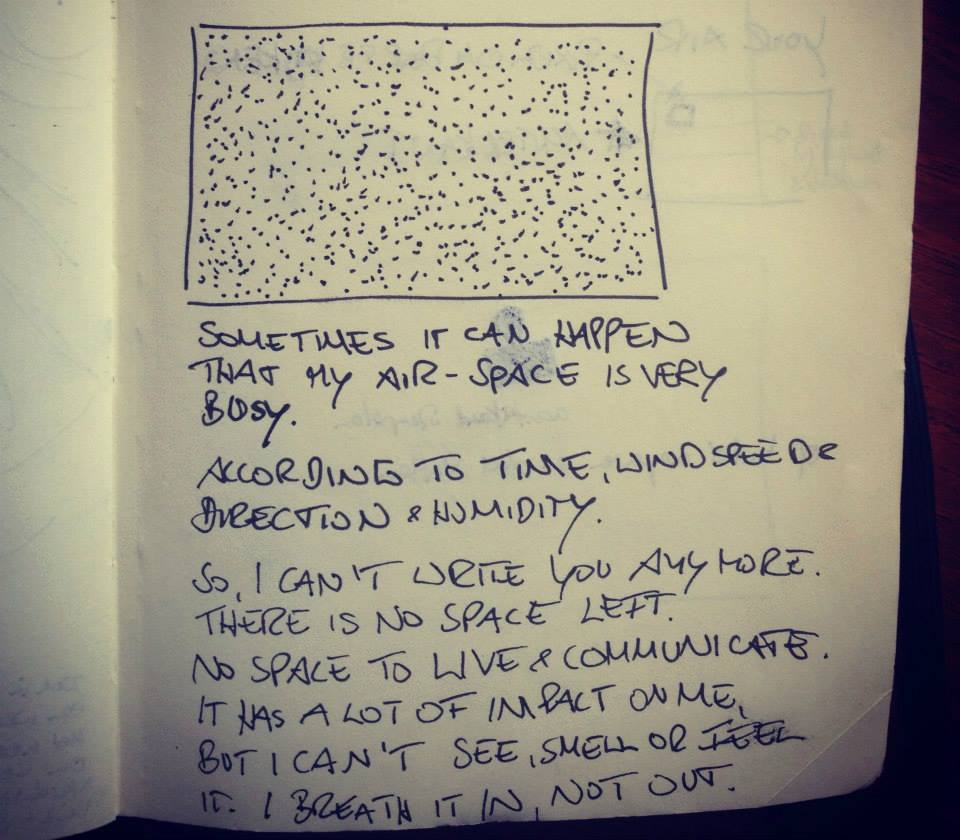 SOMETIMES IT CAN HAPPEN
THAT MY AIR-SPACE IS VERY
BUSY.
ACCORDING TO TIME, WINDSPEED &
DIRECTION & HUMIDITY.
SO, I CAN'T WRITE YOU ANYMORE.
THERE IS NO SPACE LEFT.
NO SPACE TO LIVE & COMMUNICATE.
IT HAS A LOT OF IMPACT ON ME,
BUT I CAN'T SEE, SMELL OR FEEL
IT. I BREATH IT IN, NOT OUT.